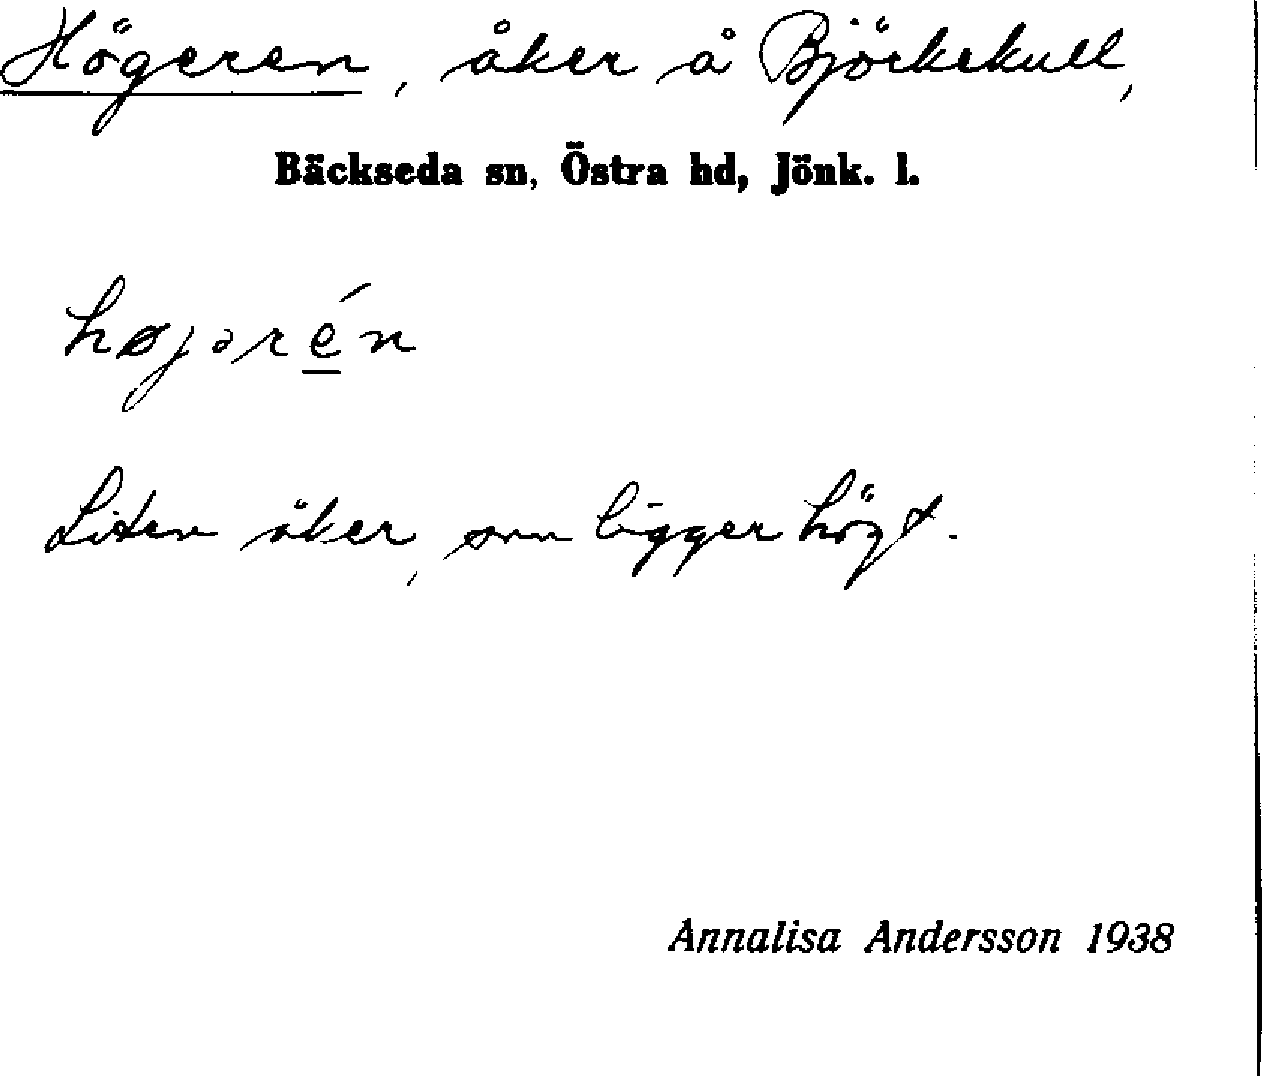 Högeren, åker å Björkekull,
Bäckseda sn, Östra hd, Jönk. l.
højərén
Liten åker, som ligger högt.
Annalisa Andersson 1938